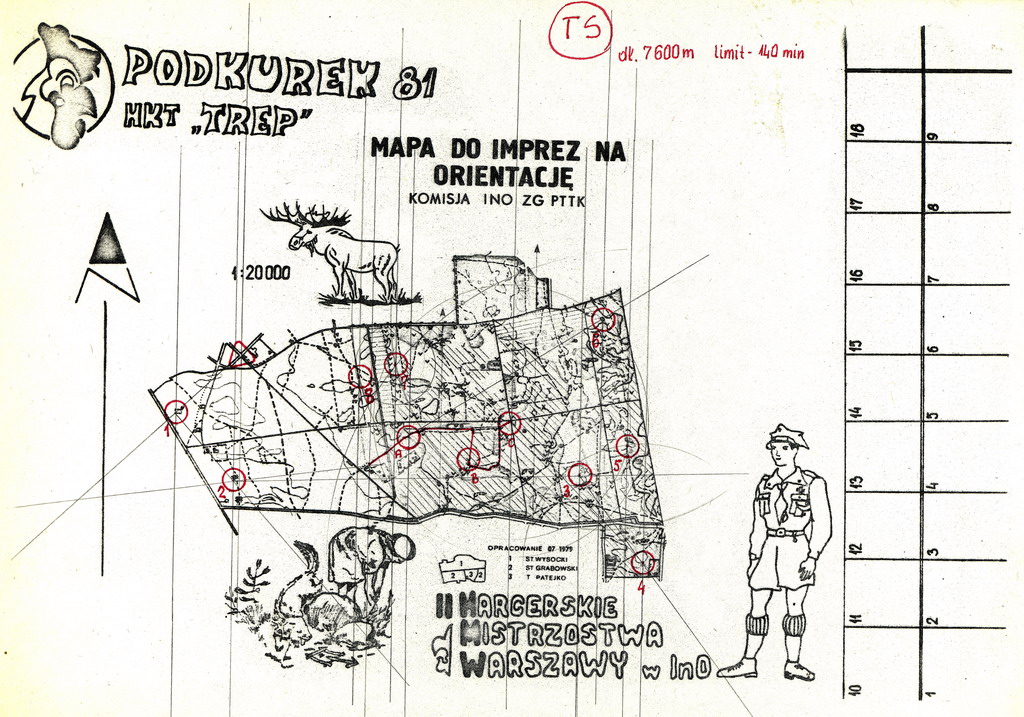 TS
dł. 7600 m limit - 140 min
PODKUREK 81
HKT „TREP"
MAPA DO IMPREZ NA
ORIENTACJĘ
KOMISJA INO ZG PTTK
1:20 000
6
7
8
1
A
C
B
5
2
3
4
OPRACOWANIE 07 1979
1 ST WYSOCKI
2 ST GRABOWSKI
3 T PATEJKO
1
2 3/2
II HARCERSKIE
MISTRZOSTWA
WARSZAWY w InO
18 9
17 8
16 7
15 6
14 5
13 4
12 3
11 2
10 1